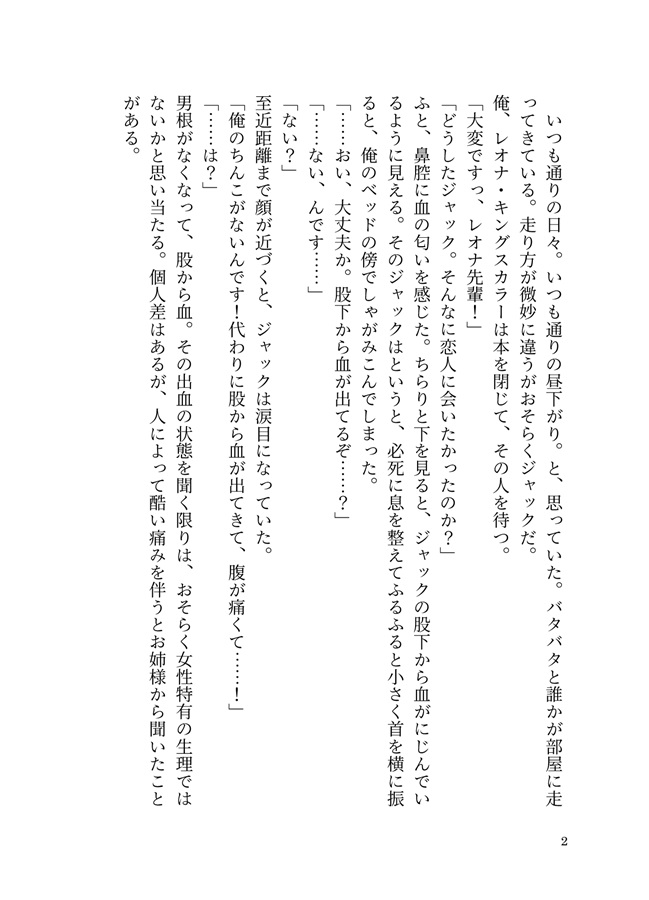 いつも通りの日々。いつも通りの昼下がり。と、思っていた。バタバタと誰かが部屋に走
ってきている。走り方が微妙に違うがおそらくジャックだ。
俺、レオナ・キングスカラーは本を閉じて、その人を待つ。
「大変ですっ、レオナ先輩！」
「どうしたジャック。そんなに恋人に会いたかったのか？」
ふと、鼻腔に血の匂いを感じた。ちらりと下を見ると、ジャックの股下から血がにじんでい
るように見える。そのジャックはというと、必死に息を整えてふるふると小さく首を横に振
ると、俺のベッドの傍でしゃがみこんでしまった。
「……おい、大丈夫か。股下から血が出てるぞ……？」
「……ない、んです……」
「ない？」
至近距離まで顔が近づくと、ジャックは涙目になっていた。
「俺のちんこがないんです！代わりに股から血が出てきて、腹が痛くて……！」
「……は？」
男根がなくなって、股から血。その出血の状態を聞く限りは、おそらく女性特有の生理では
ないかと思い当たる。個人差はあるが、人によって酷い痛みを伴うとお姉様から聞いたこと
がある。
2